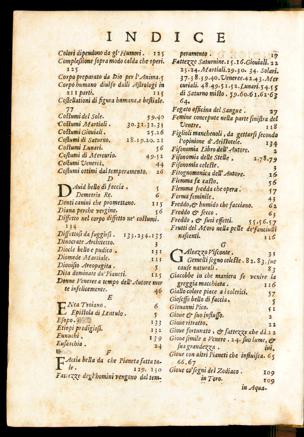 INDICE
Colori dipendono da gl'Humori. 125
Complessione sopra modo calda che operi.
125
Corpo preparato da Dio per l'Anima. 5
Corpo humano diviso dalli Astrologi in
parti. 115
Costellationi di figura humana, e bestiale.
77
Costumi del Sole. 39.40
Costumi Martiali. 30.31.32.33
Costumi Giouiali. 25.26
Costumi di Saturno. 18.19.20.21
Costumi Lunari. 56
Costumi di Mercurio. 49.52
Costumi Venerei. 44
Costumi ottimi dal temperamento. 26
D
Dauid bello di faccia. 5
Demetrio Re. 6
Denti canini che promettano. 115
Diana perche vergine. 56
Diffetto nel corpo diffetto ne' costumi.
134
Diffettosi da fuggirsi. 133.234.135
Dinocrate Architetto. 3
Diocle bello e pudico. 131
Diomede Martiale. 131
Dionisio Areopagita. 5
Dita dominate da' Pianeti. 115
Donne Venere a tempo dell'Autore morte infelicemente. 46
E
Enea Troiano. 6
Epistola di Lentulo. 5
Esopo. 133
Etiopi prodigiosi. 132
Eunuchi. 139
Eucarchia. 24
F
Faccia bella da che Pianeta fatta tale. 129. 130
Fattezze degl'homini vengono dal temperamento. 19
Fattezze Saturnine. 15.16. Giouiali. 22
23.24. Martiali. 29.30. 34. Solari.
37.38.59.40. Veneree. 42.43. Mercuriali. 48.49.51.52. Lunari. 54.55
di Saturno misto. 59.60.61.62 63
64.
Fegato officina del Sangue. 27
Femine concepute nella parte sinistra del
Ventre. 118
Figlioli manchevoli, da gettarsi secondo
l'opinione d'Aristotele. 134
Fisonomia Libro dell'Autore. 2
Fisonomia delle Stelle. 2.78.79
Fisonomia celeste. 1
Fitognomonica dell'Autore. 16
Flemma fa casto. 56
Flemma fredda che opera. 57
Forma feminile. 43
Freddo, & humido che facciano. 62
Freddo & secco. 63
Freddo, & suoi effetti. 55.56.57
Frutti del Moro nella pelle de' fanciulli
nascenti. 116
G
Galeazzo Visconte. 31
Gemelli segno celeste. 82. 83. sue
cause naturali. 83
Giacobbe in che maniera fe venire la
greggia macchiata. 116
Giallo colore piace a colerici. 57
Gioseffo bello di faccia. 5
Giouanni Pico. 51
Gioue & suo influsso. 2
Gioue ritratto. 22
Gioue fortunato, & fattezze che dà. 22
Gioue simile a Venere. 24. suo lume, &
sua grandezza. ivi.
Gioue con altri Pianeti che influisca. 65
66.67
Gioue co' segni del Zodiaco. 109
in Toro. 109
in Aqua-